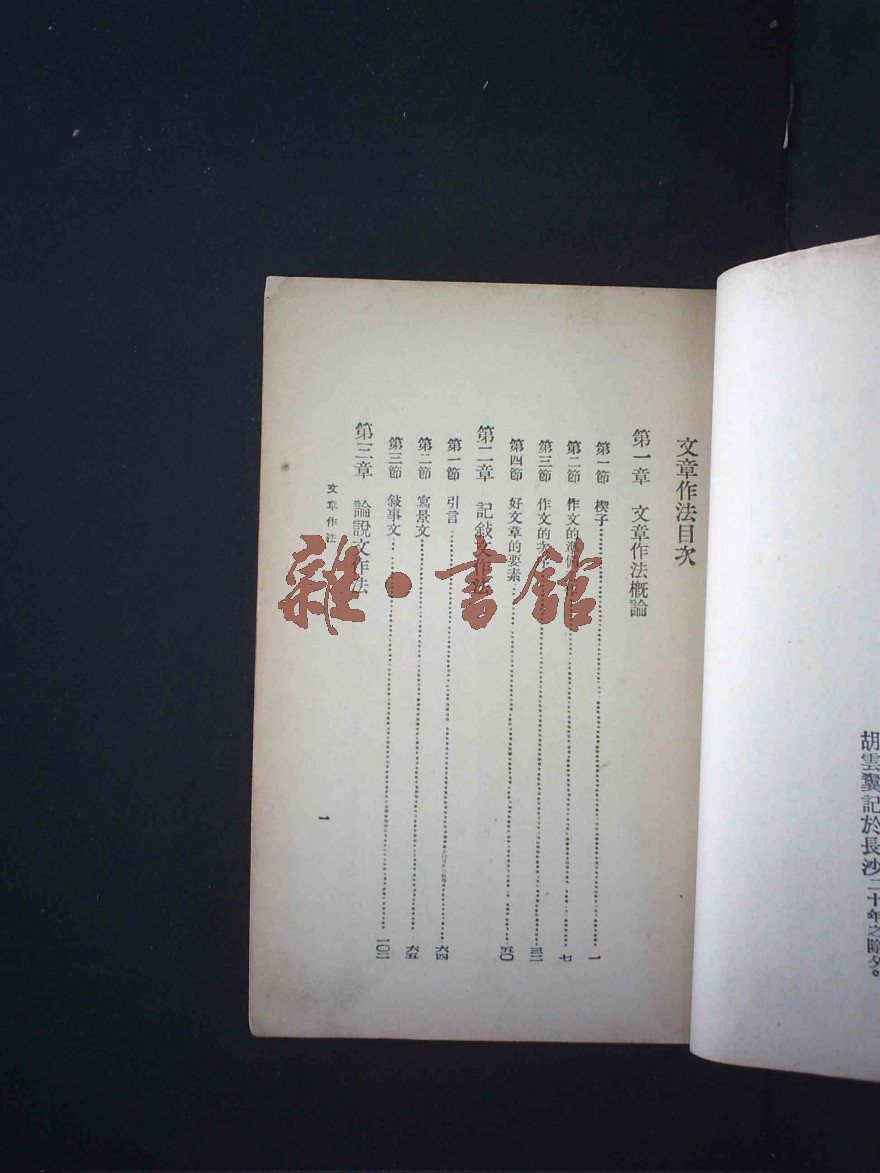 胡雲翼記於長沙二十年之除夕。
文章作法目次
第一章 文章作法概論
第一節 楔子 一
第二節 作文的準備 七
第三節 作文的次序 三二
第四節 好文章的要素 五〇
第二章 記敍文作法
第一節 引言 六四
第二節 寫景文 六五
第三節 敍事文 一〇二
第三章 論說文作法
文章作法
1
雜·書館